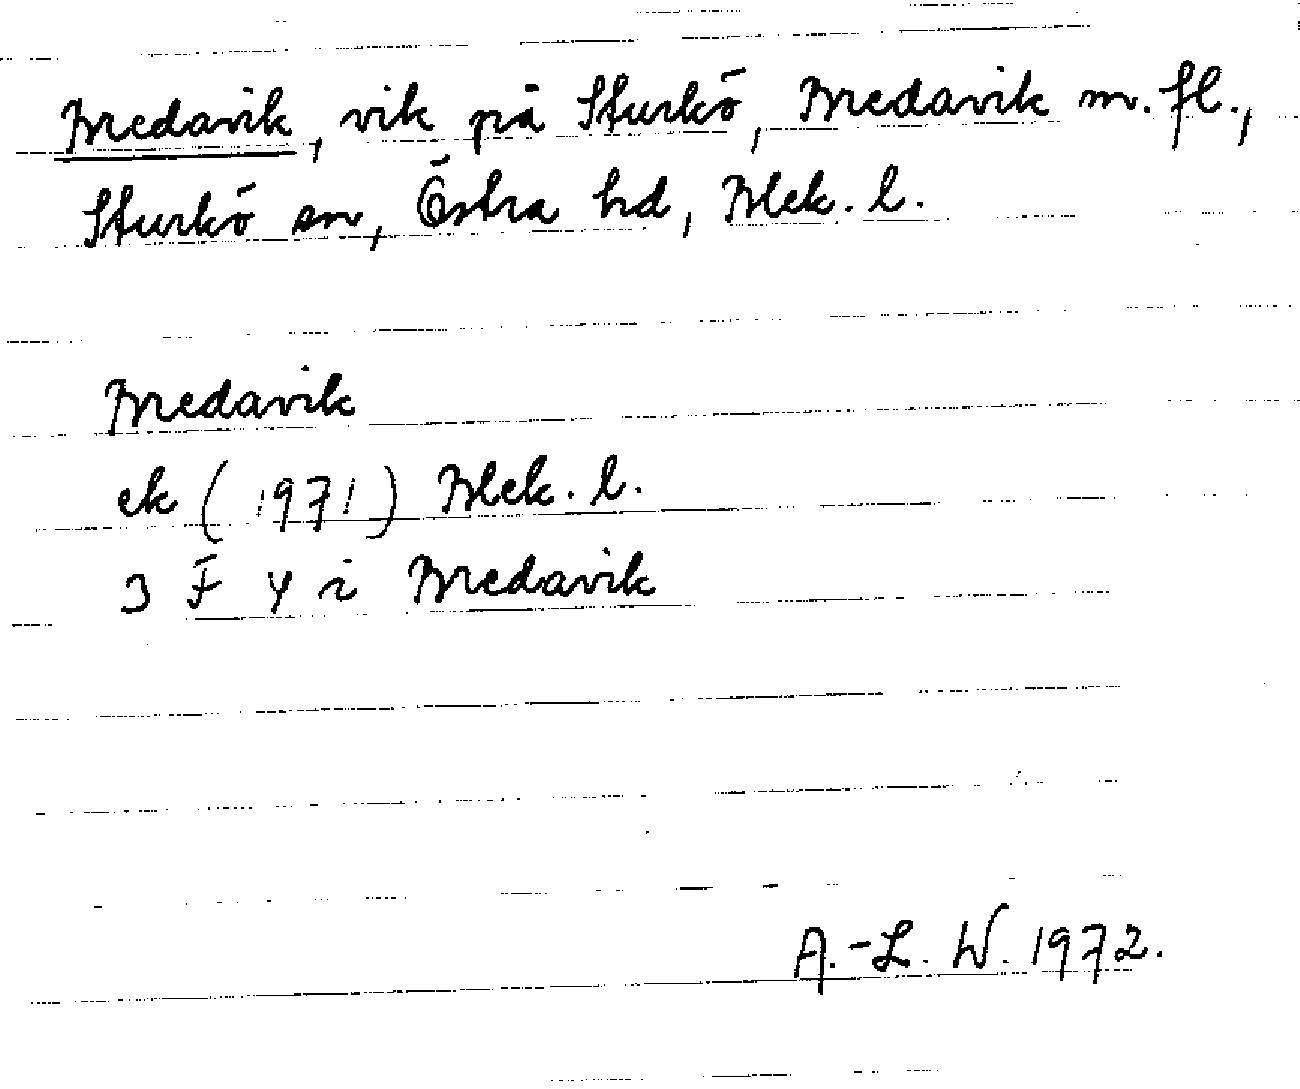 Bredavik, vik på Sturkö, Bredavik m. fl.,
Sturkö sn, Östra hd, Blek. l.
Bredavik
ek (1971) Blek. l.
3 F y i Bredavik
A.-L. W. 1972.